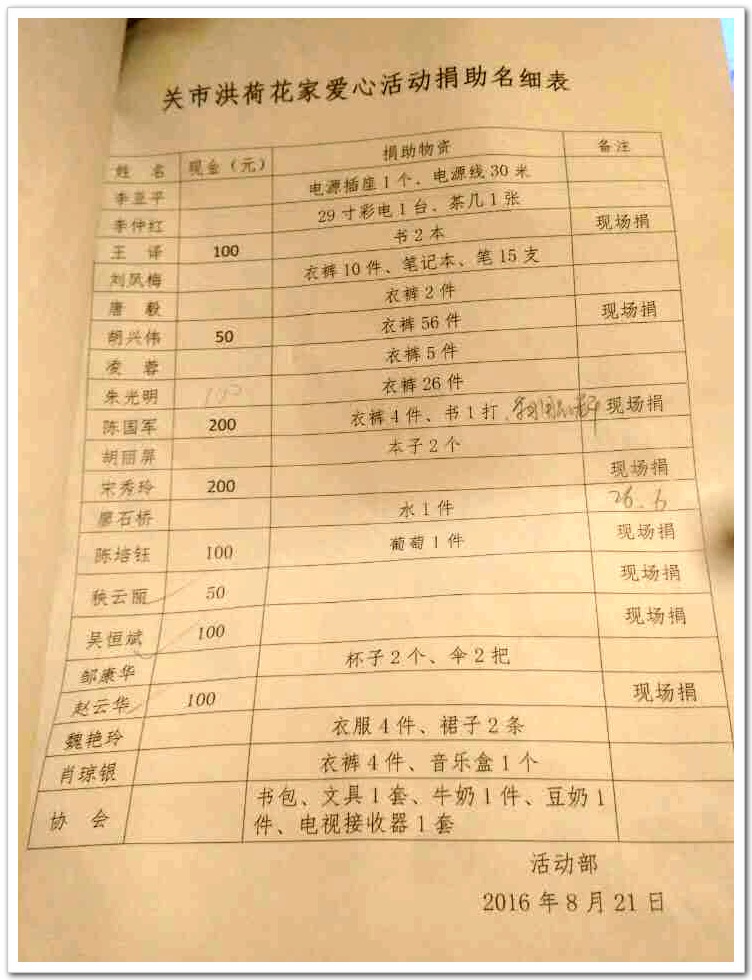 关市洪荷花家爱心活动捐助名细表
姓 名 现金（元） 捐助物资 备注
李亚平 电源插座1个、电源线30米
李仲红 29寸彩电1台、茶几1张
王 译 100 书2本 现场捐
刘凤梅 衣裤10件、笔记本、笔15支
唐 毅 衣裤2件
胡兴伟 50 衣裤56件 现场捐
凌 蓉 衣裤5件
朱光明 100 衣裤26件
陈国军 200 衣裤4件、书1打 现场捐
胡丽屏 本子2个
宋秀玲 200 现场捐
廖石桥 水1件 26.6
陈培钰 100 葡萄1件 现场捐
秧云丽 50 现场捐
吴恒斌 100 现场捐
邹康华 杯子2个、伞2把
赵云华 100 现场捐
魏艳玲 衣服4件、裙子2条
肖琼银 衣裤4件、音乐盒1个
协 会 书包、文具1套、牛奶1件、豆奶1
件、电视接收器1套
活动部
2016年8月21日